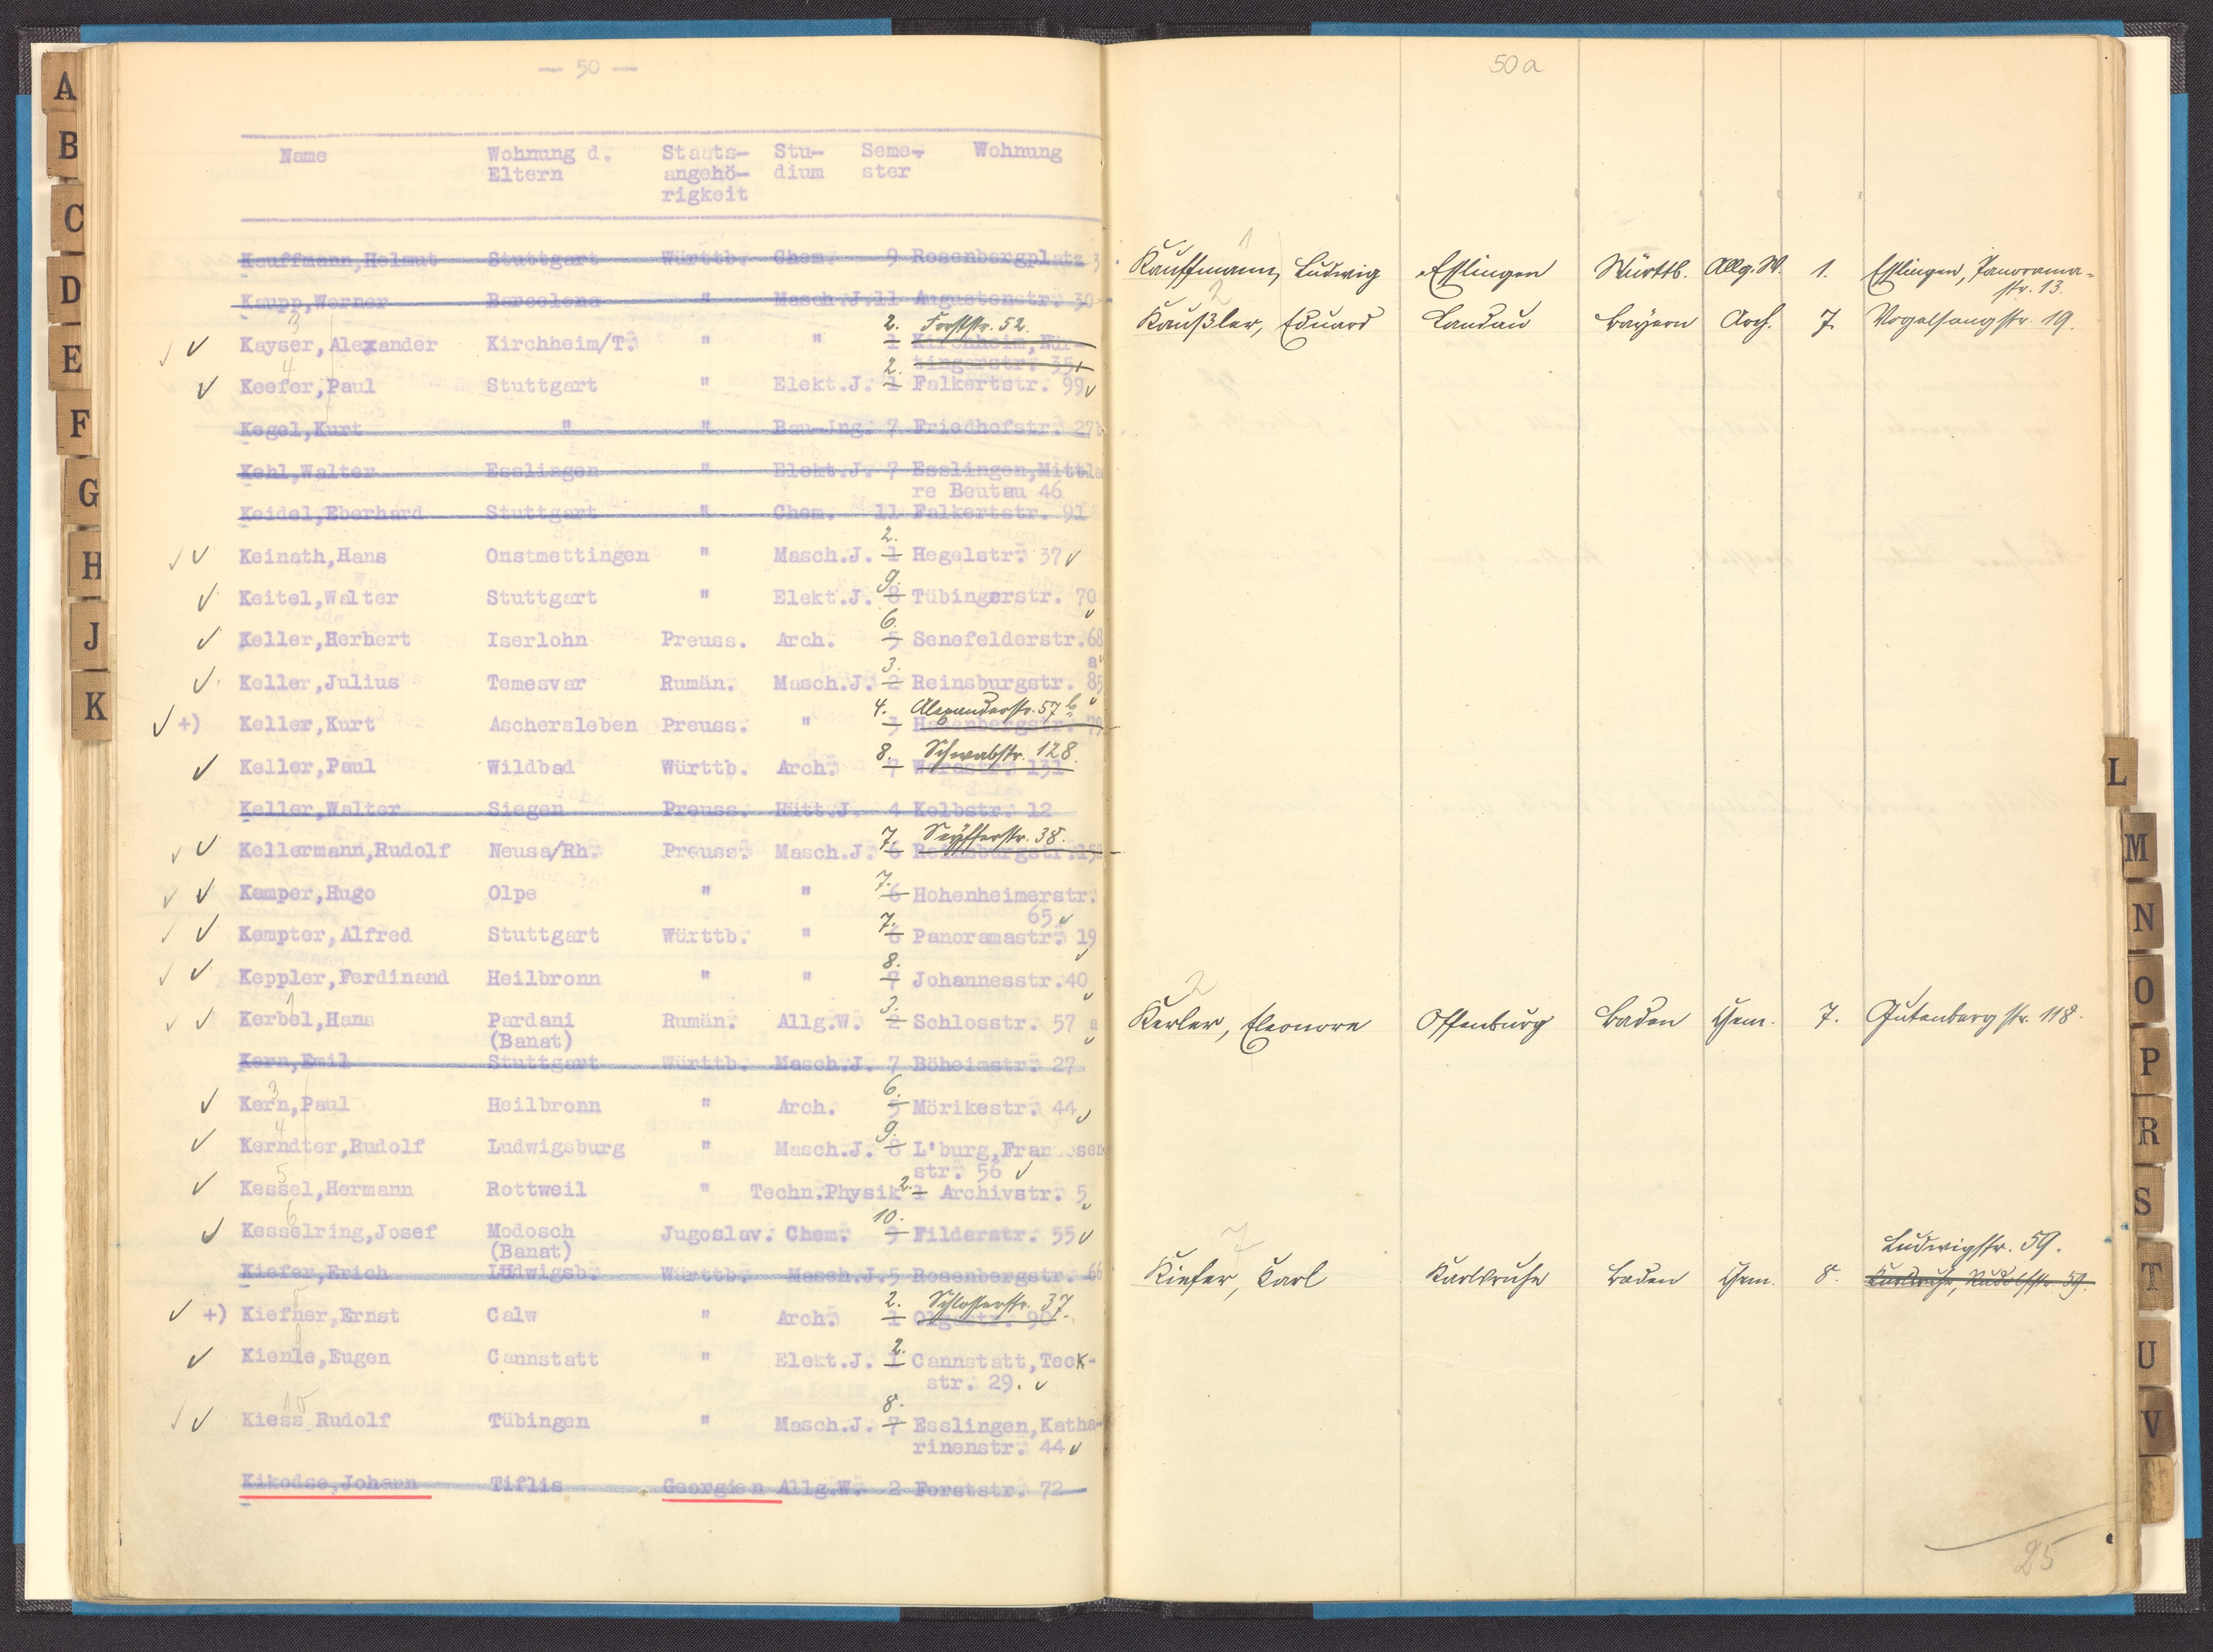 — 50 —
Name Wohnung d. Staats- Stu- Seme- Wohnung
Eltern angehö- dium ster
rigkeit
Kauffmann,Helmut Stuttgart Württb. Chem. 9 Rosenbergplatz 3
Kaupp,Werner Barcelona " Masch.J. 11 Augustenstr. 30
3 2. Forststr. 52.
Kayser,Alexander Kirchheim/T. " " 1 Kirchheim,Nür-
4 2. tingerstr. 35
Keefer,Paul Stuttgart " Elekt.J. 1 Falkertstr. 99
Kegel,Kurt " " Bau-Jng. 7 Friedhofstr. 27
Kehl,Walter Esslingen " Elekt.J. 7 Esslingen,Mittle
re Beutau 46
Keidel,Eberhard Stuttgart " Chem. 11 Falkertstr. 91
2.
Keinath,Hans Onstmettingen " Masch.J. 1 Hegelstr. 37
9.
Keitel,Walter Stuttgart " Elekt.J. 8 Tübingerstr. 70
6.
Keller,Herbert Iserlohn Preuss. Arch. 5 Senefelderstr.68
3. a
Keller,Julius Temesvar Rumän. Masch.J. 2 Reinsburgstr. 85
4. Alexanderstr. 57 b
+) Keller,Kurt Aschersleben Preuss. " 3 Hasenbergstr. 79
8. Schwabstr. 128.
Keller,Paul Wildbad Württb. Arch. 7 Werastr. 131
Keller,Walter Siegen Preuss. Hütt.J. 4 Kolbstr. 12
7. Seyfferstr. 38.
Kellermann,Rudolf Neusa/Rh. Preuss. Masch.J. 6 Reinsburgstr.
7.
Kemper,Hugo Olpe " " 6 Hohenheimerstr.
7. 65
Kempter,Alfred Stuttgart Württb. " 6 Panoramastr. 19
8.
Keppler,Ferdinand Heilbronn " " 7 Johannesstr.40
1 3.
Kerbel,Hans Pardani Rumän. Allg.W. 2 Schlosstr. 57 a
(Banat)
Kern,Emil Stuttgart Württb. Masch.J. 7 Böheimstr. 27
3 6.
Kern,Paul Heilbronn " Arch. 5 Mörikestr. 44
4 9.
Kerndter,Rudolf Ludwigsburg " Masch.J. 8 L'burg,Franzosen
str. 56
5 2.
Kessel,Hermann Rottweil " Techn.Physik 1 Archivstr. 5
6 10.
Kesselring,Josef Modosch Jugoslav. Chem. 9 Filderstr. 55
(Banat)
Kiefer,Erich Ludwigsb. Württb. Masch.J. 5 Rosenbergstr. 66
8 2. Schlosserstr. 37.
+) Kiefner,Ernst Calw " Arch. 1 Olgastr. 90
9 2.
Kienle,Eugen Cannstatt " Elekt.J. 1 Cannstatt,Teck-
str. 29.
10 8.
Kiess Rudolf Tübingen " Masch.J. 7 Esslingen,Katha-
rinenstr. 44
Kikodse,Johann Tiflis Georgien Allg.W. 2 Forststr. 72
50a
1
Kauffmann, Ludwig Esslingen Württb. Allg. W. 1. Esslingen, Panorama-
2 str. 13.
Kaußler, Eduard Landau Bayern Arch. 7. Vogelsangstr. 19.
2
Kerler, Eleonore Offenburg Baden Chem. 7. Gutenbergstr. 118.
7 Ludwigstr. 59.
Kiefer, Karl Karlsruhe Baden Chem. 8. Karlsruhe, Rudolfstr. 59.
25
A
B
C
D
E
F
G
H
J
K
L
M
N
O
P
R
S
T
U
V